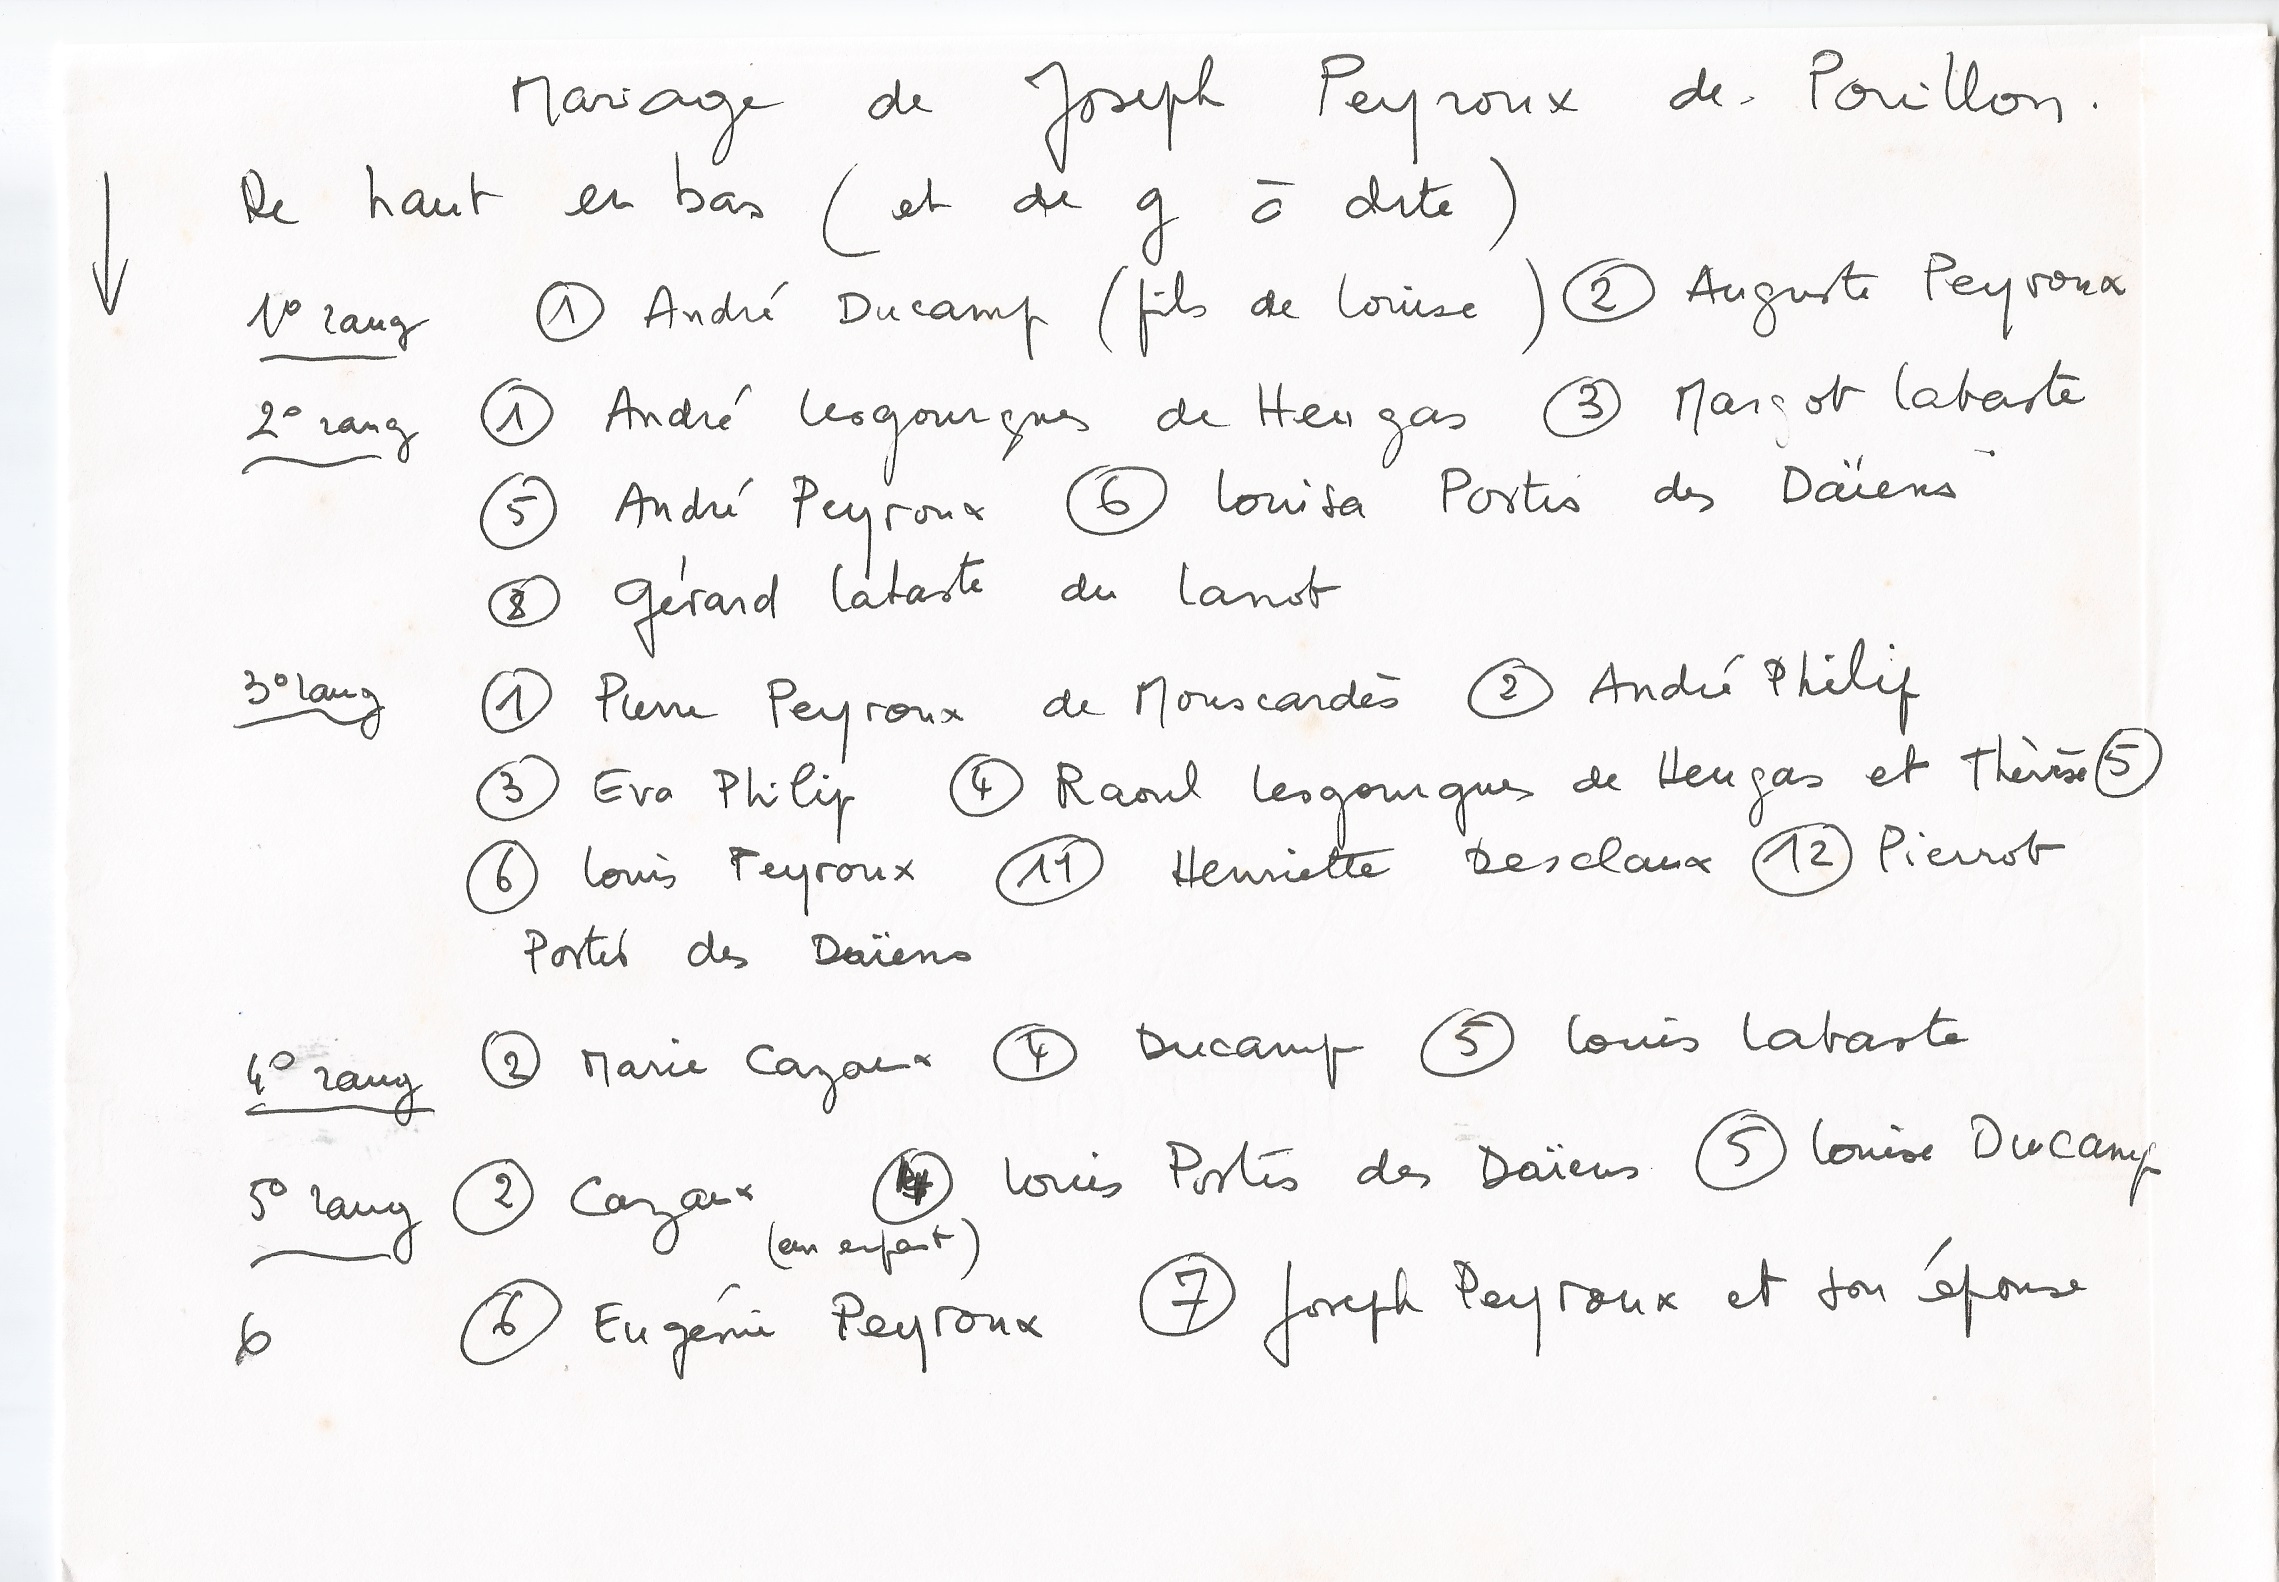 Mariage de Joseph Peyroux de Pouillon.
De haut en bas (et de g à dte)
1° rang ① André Ducamp (fils de Louise) ② Auguste Peyroux
2° rang ① André Lesgourgues de Heugas ③ Margot Lataste
⑤ André Peyroux ⑥ Louisa Portes des Daïens
⑧ Gérard Lataste du Lanot
3° rang ① Pierre Peyroux de Mouscardès ② André Philip
③ Eva Philip ④ Raoul Lesgourgues de Heugas et Thérèse ⑤
⑥ Louis Peyroux ⑪ Henriette Desclaux ⑫ Pierrot
Portes des Daïens
4° rang ② Marie Cazaux ④ Ducamp ⑤ Louis Lataste
5° rang ② Cazaux ④ Louis Portes des Daïens ⑤ Louise Ducamp
(un enfant)
6 ⑥ Eugénie Peyroux ⑦ Joseph Peyroux et son épouse